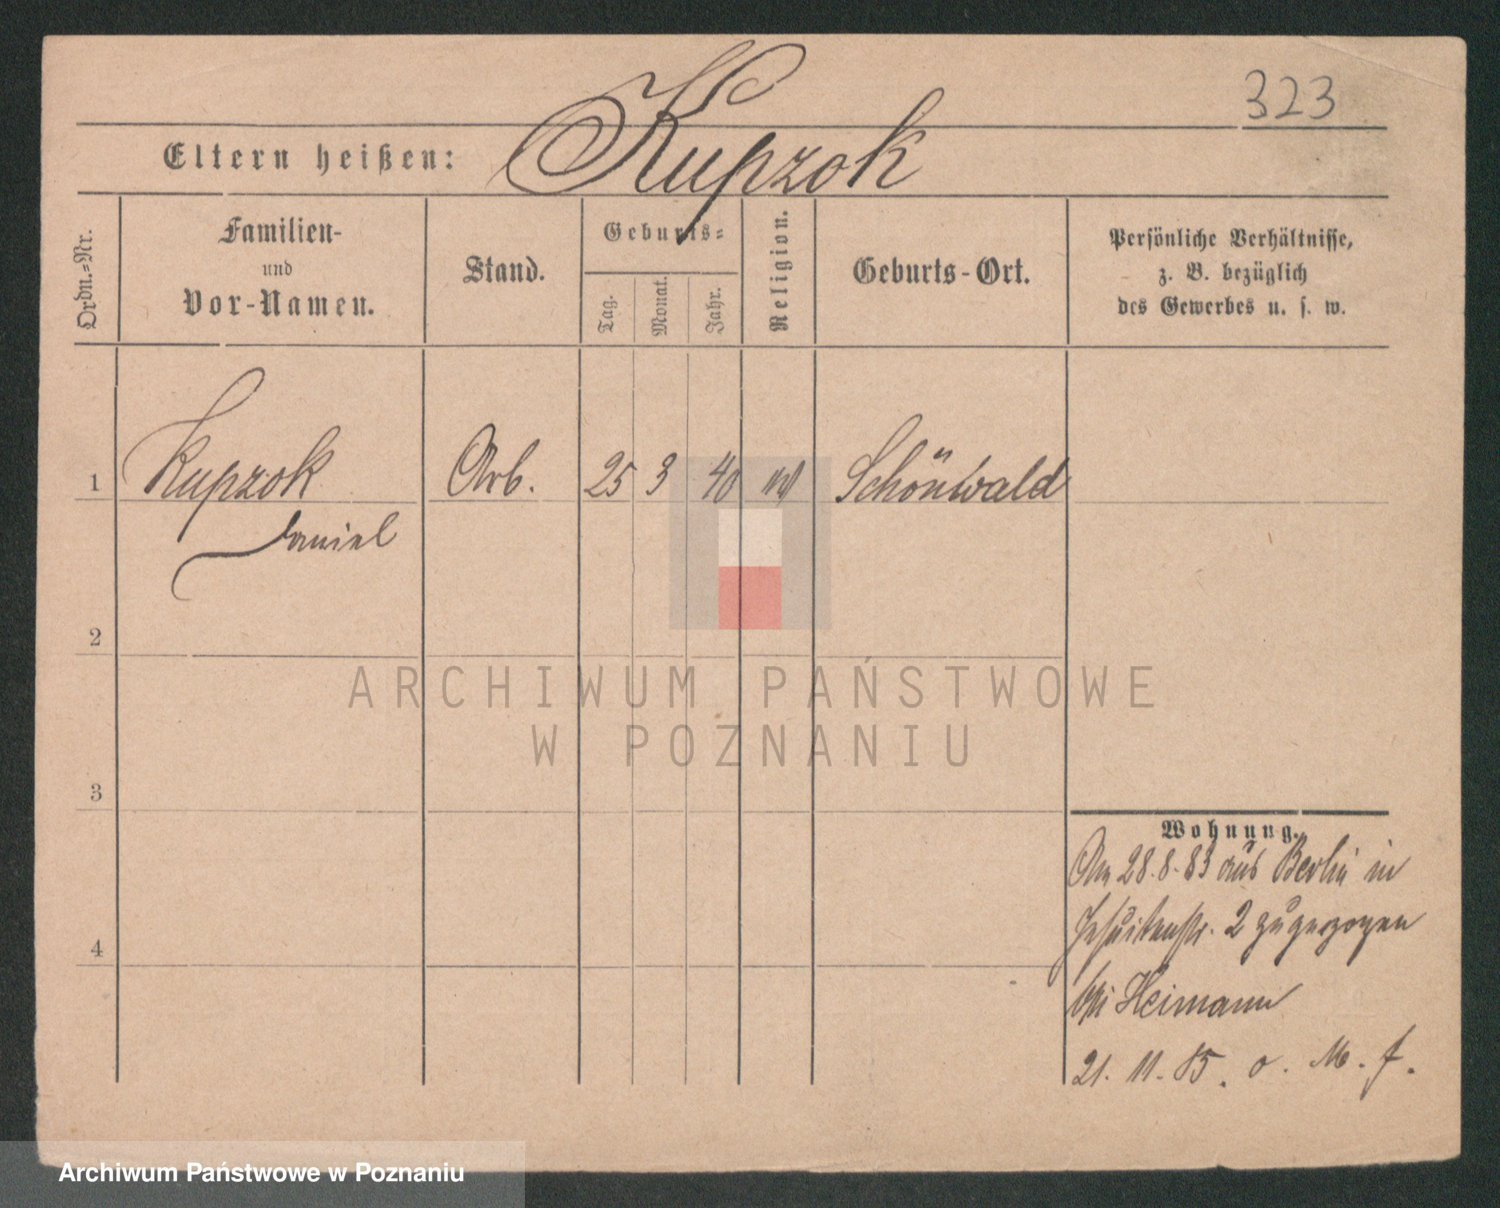 323
Eltern heißen: Kupzok
Ordn.=Nr.
Familien-
und
Vor-Namen.
Stand.
Geburts=
Tag.
Monat.
Jahr.
Religion.
Geburts-Ort.
Persönliche Verhältnisse,
z. B. bezüglich
des Gewerbes u. s. w.
1 Kupzok Arb. 25 3 40 Schönwald
Daniel
2
ARCHIWUM PAŃSTWOWE
W POZNANIU
3
Wohnung.
Am 28.8.83 aus Berlin in
Jesuitenstr. 2 zugezogen
bei Heimann
21. 11. 85. o. M. f.
4
Archiwum Państwowe w Poznaniu